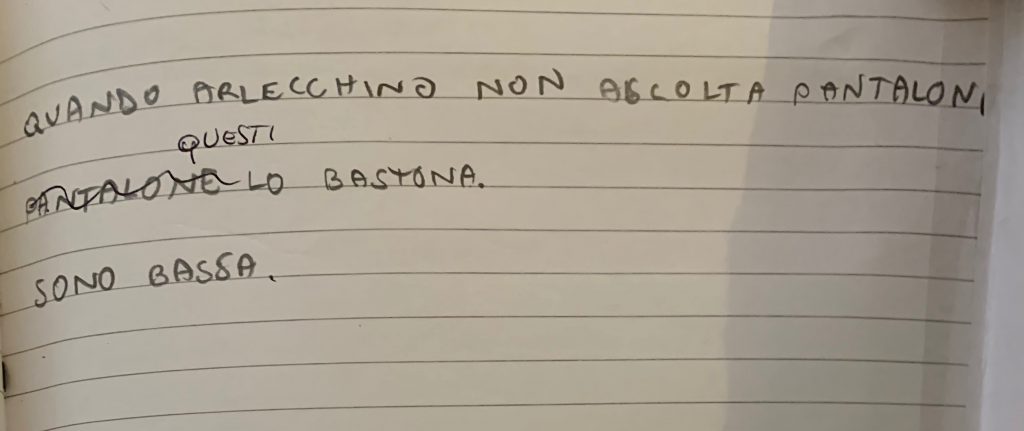 QUANDO ARLECCHINO NON ASCOLTA PANTALON,
QUESTI
PANTALONE LO BASTONA.
SONO BASSA.